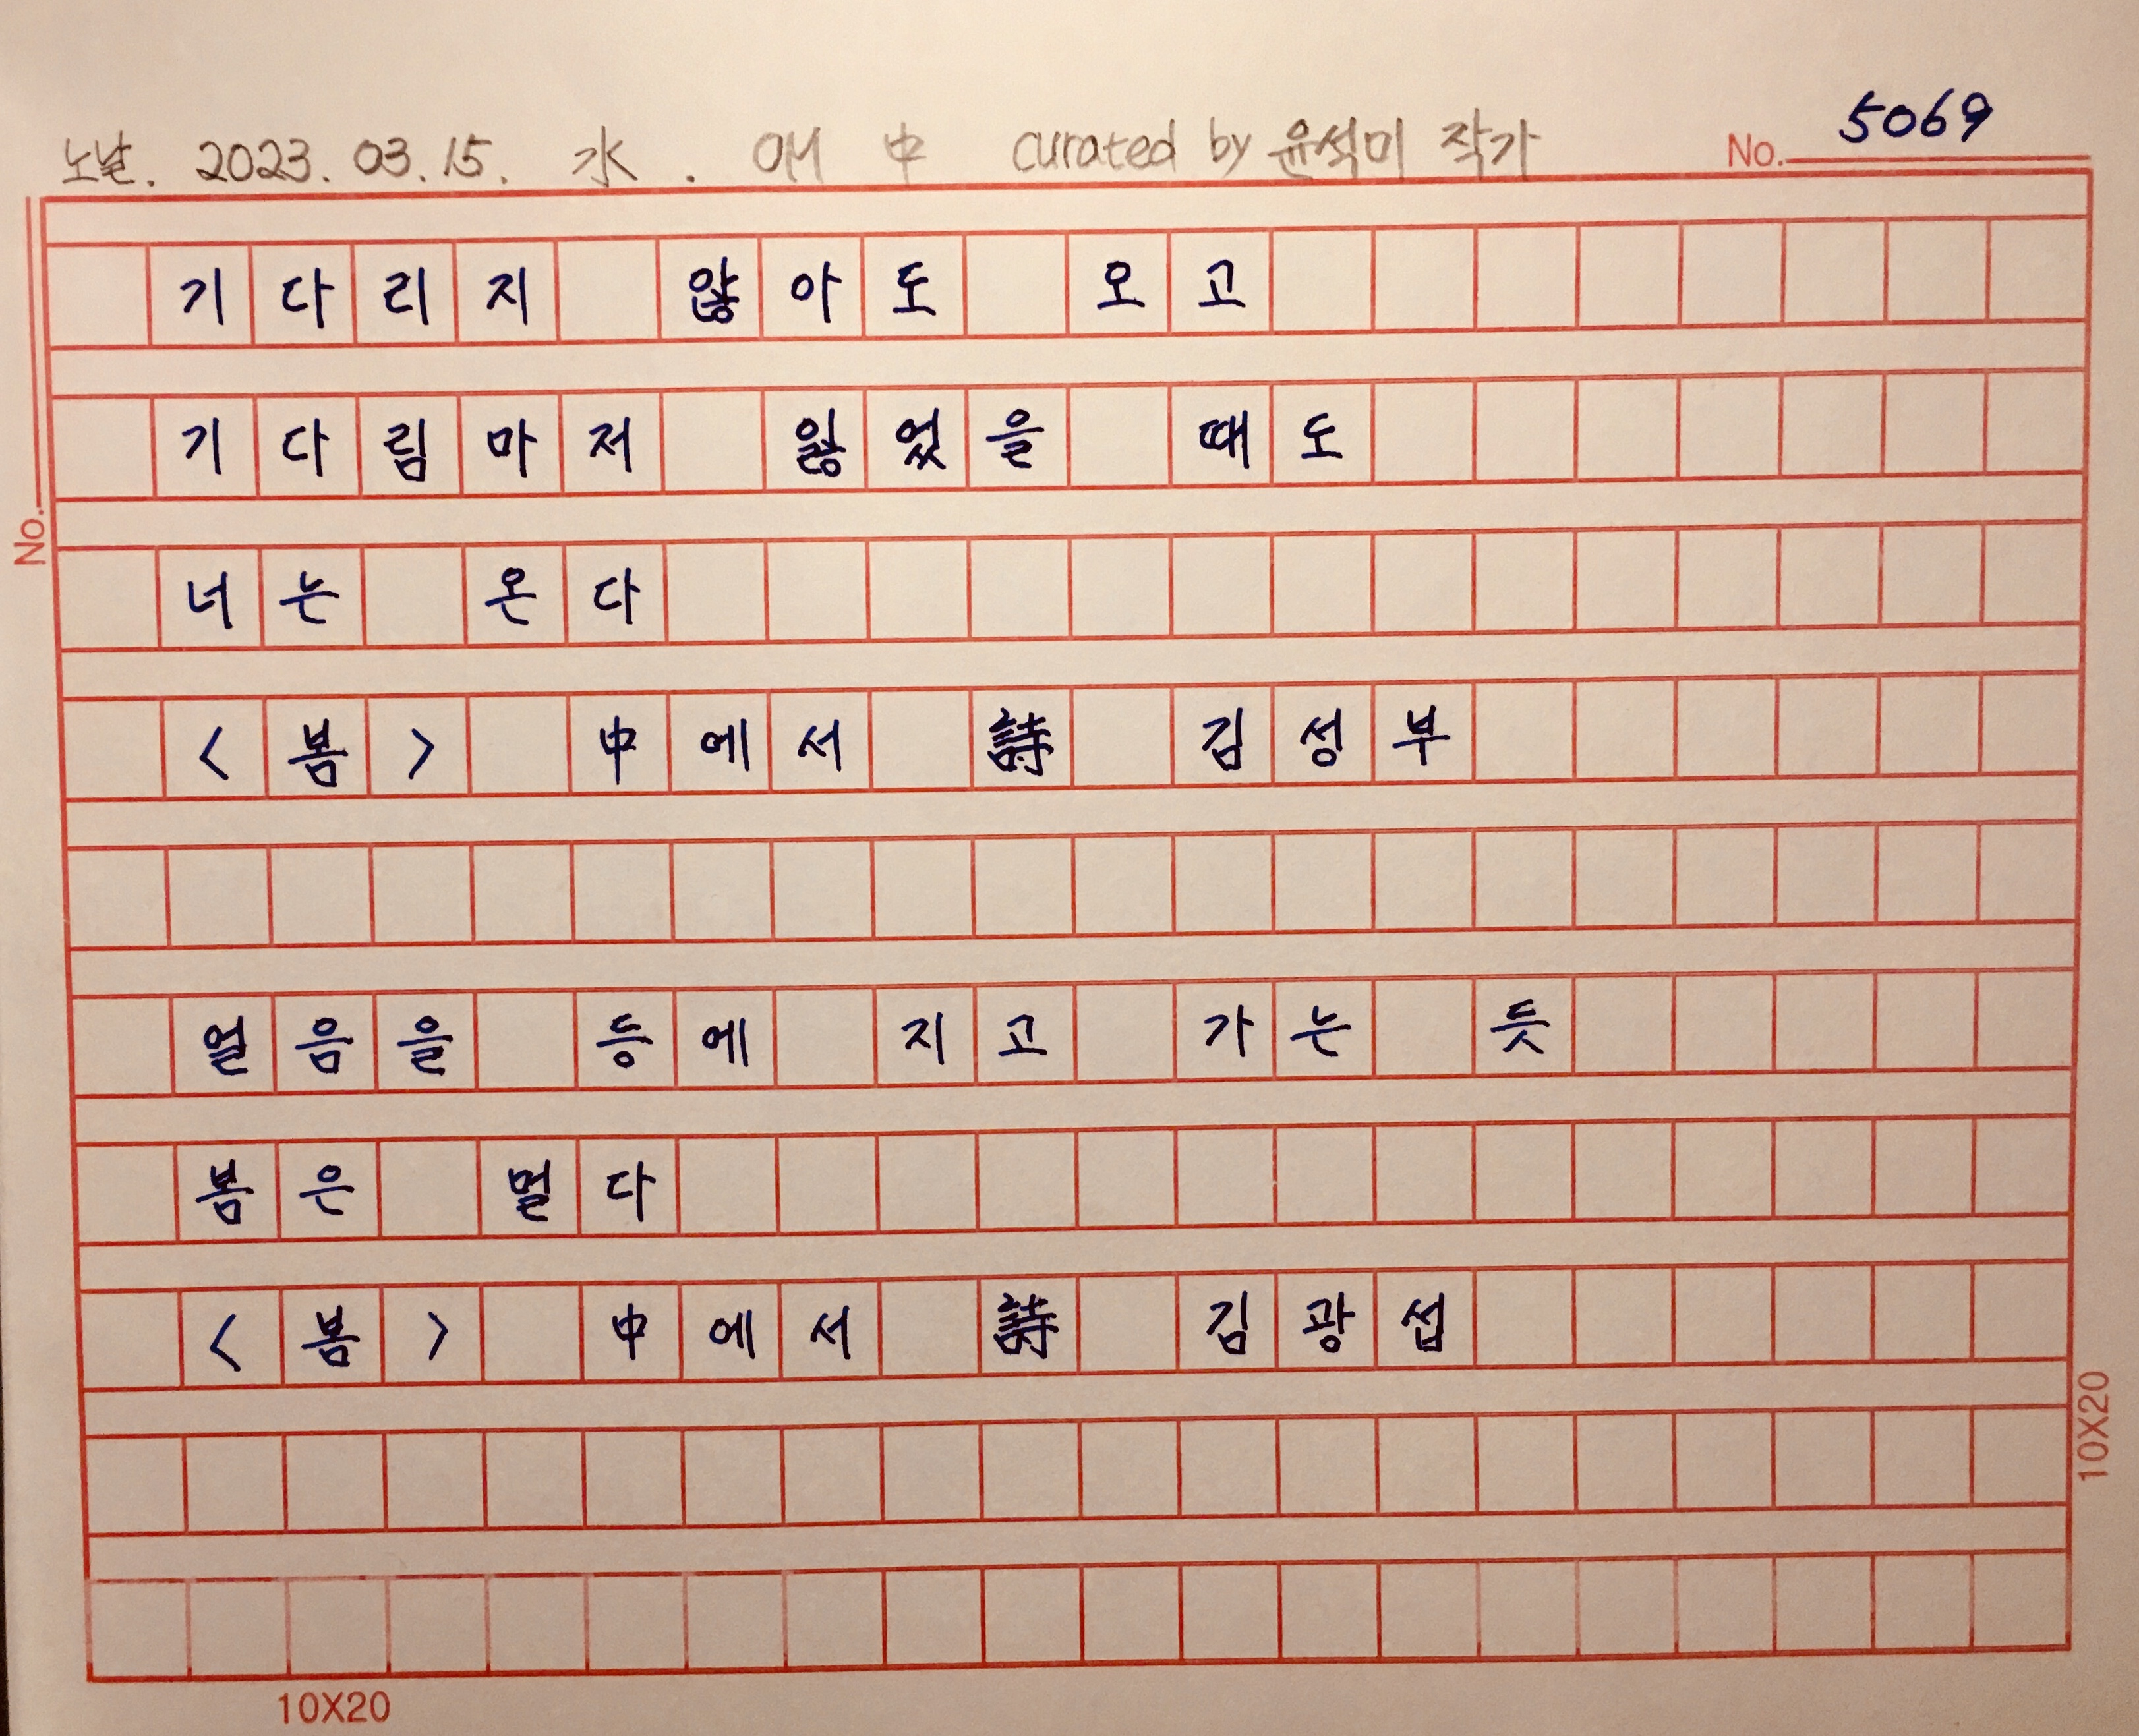 노날. 2023. 03. 15. 水. 애 中 curated by 윤석미 작가 No. 5069
기다리지 않아도 오고
기다림마저 잃었을 때도
너는 온다
<봄> 中에서 詩 김성부
얼음을 등에 지고 가는 듯
봄은 멀다
<봄> 中에서 詩 김광섭
No.
10X20
10X20